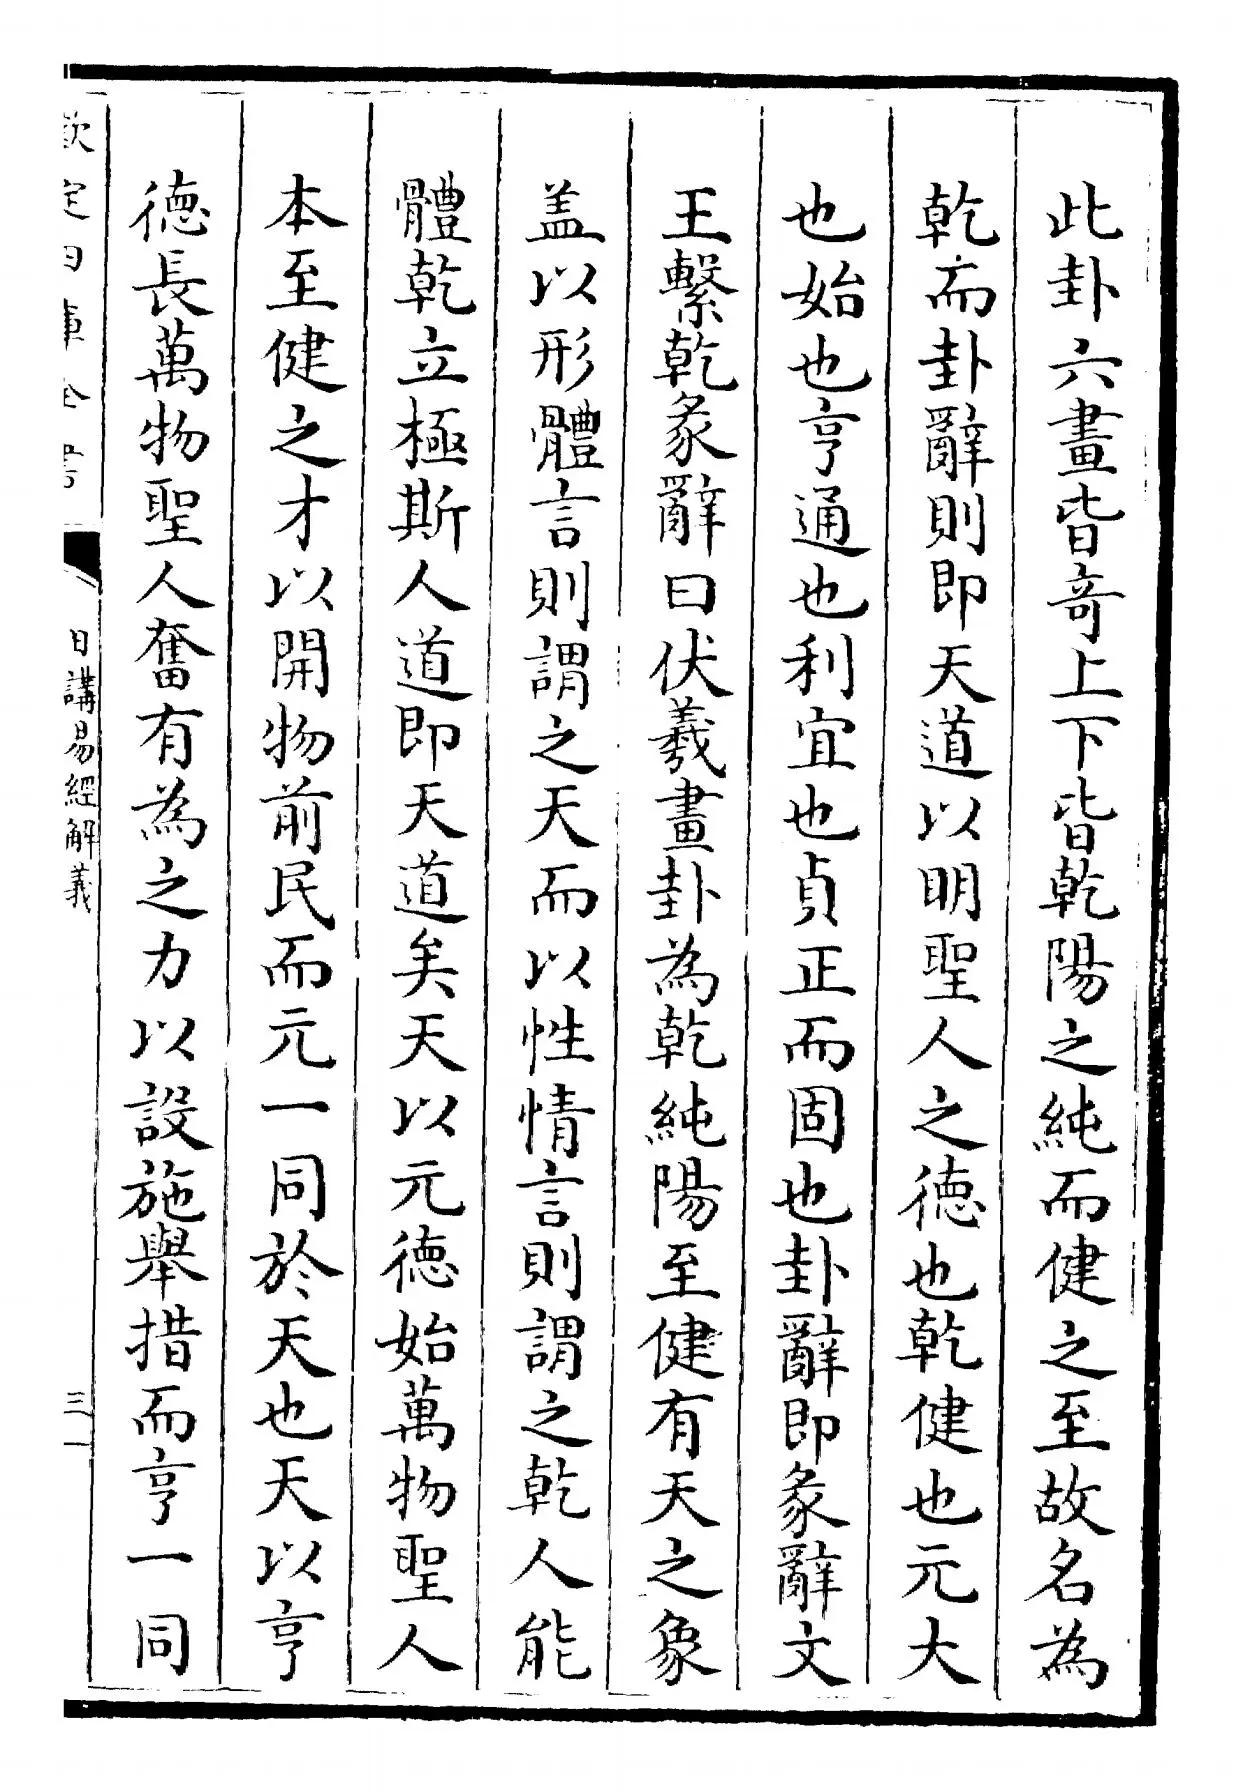 此卦六畫皆奇上下皆乾陽之純而健之至故名為
乾而卦辭則即天道以明聖人之德也乾健也元大
也始也亨通也利宜也貞正而固也卦辭即彖辭文
王繫乾彖辭曰伏羲畫卦為乾純陽至健有天之象
盖以形體言則謂之天而以性情言則謂之乾人能
體乾立極斯人道即天道矣天以元德始萬物聖人
本至健之才以開物前民而元一同於天也天以亨
德長萬物聖人奮有為之力以設施舉措而亨一同
欽定四庫全書
日講易經解義
三一